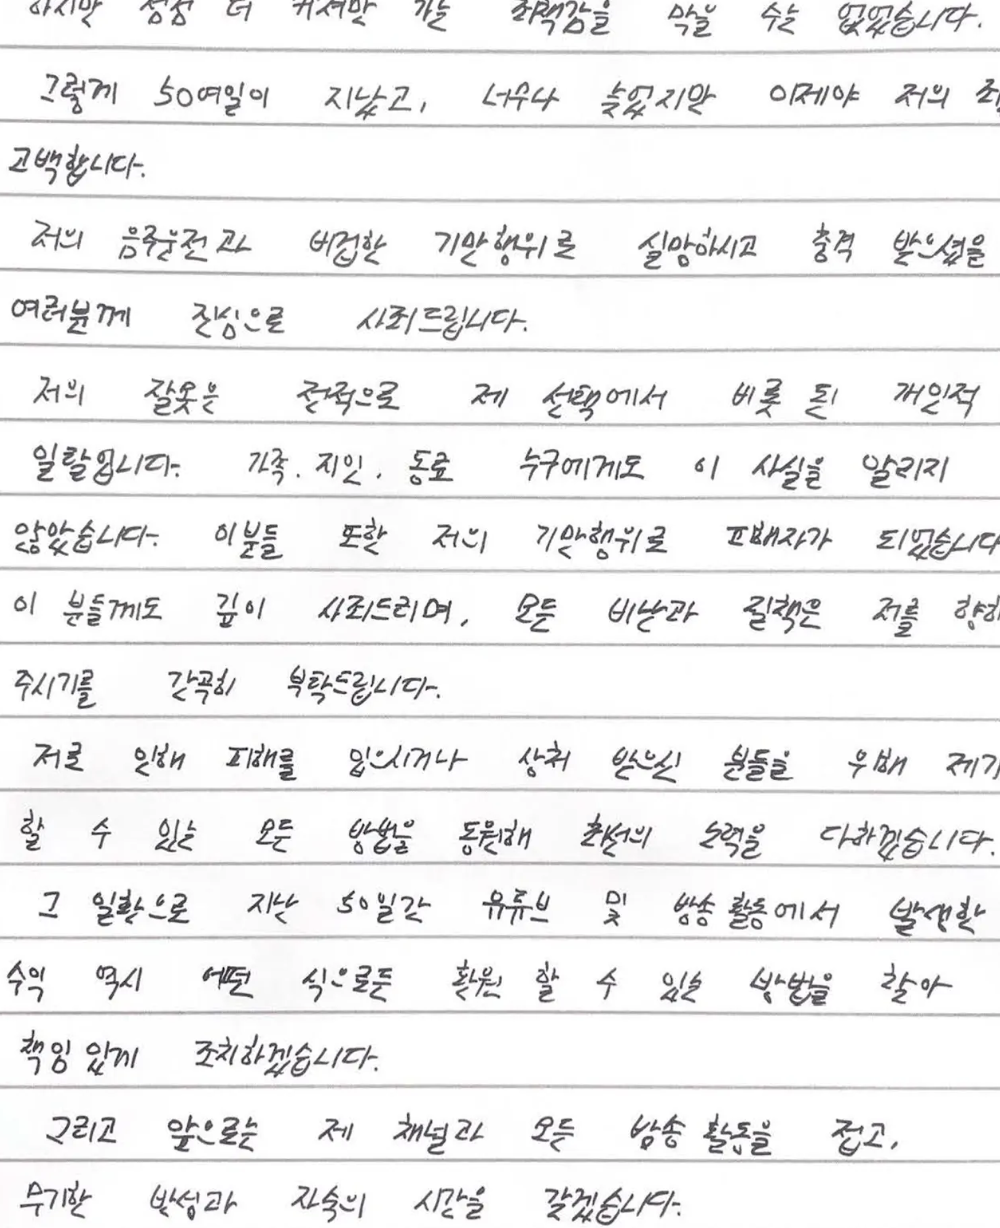 하지만 점점 더 커져만 가는 죄책감을 막을 수는 없었습니다.
그렇게 50여일이 지났고, 너무나 늦었지만 이제야 저의 죄
고백합니다.
저의 음주운전과 비겁한 기만행위로 실망하시고 충격 받으셨을
여러분께 진심으로 사죄드립니다.
저의 잘못은 전적으로 제 선택에서 비롯 된 개인적
일탈입니다. 가족. 지인. 동료 누구에게도 이 사실을 알리지
않았습니다. 이분들 또한 저의 기만행위로 피해자가 되었습니다
이 분들께도 깊이 사죄드리며, 모든 비난과 질책은 저를 향해
주시기를 간곡히 부탁드립니다.
저로 인해 피해를 입으시거나 상처 받으신 분들을 위해 제가
할 수 있는 모든 방법을 동원해 최선의 노력을 다하겠습니다.
그 일환으로 지난 50일간 유튜브 및 방송 활동에서 발생한
수익 역시 어떤 식으로든 환원 할 수 있는 방법을 찾아
책임 있게 조치하겠습니다.
그리고 앞으로는 제 채널과 모든 방송 활동을 접고,
무기한 반성과 자숙의 시간을 갖겠습니다.